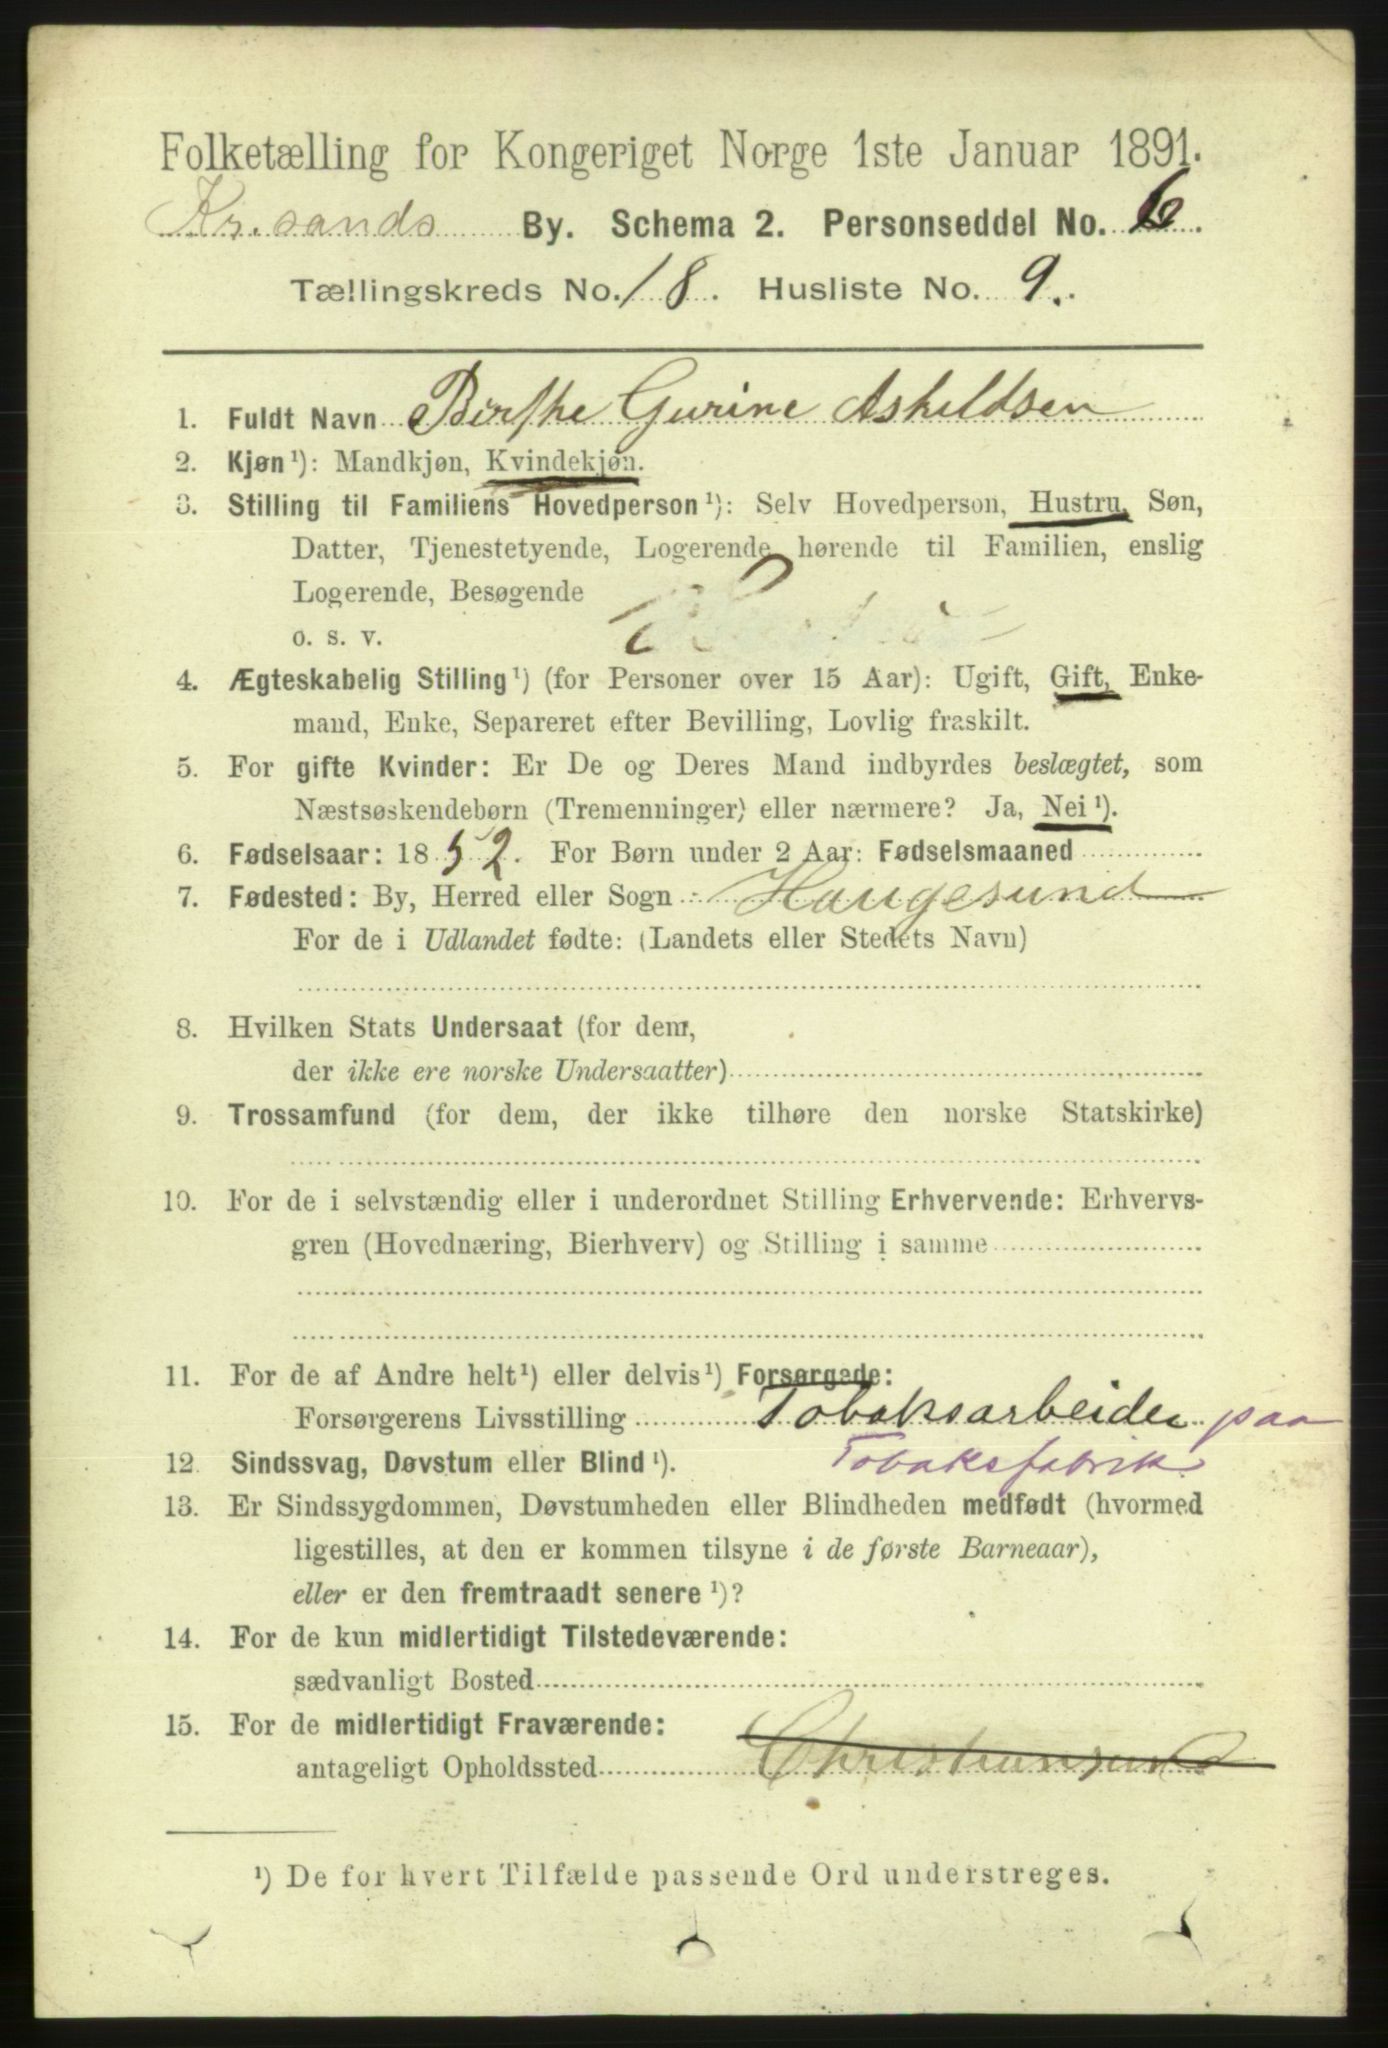 Folketælling for Kongeriget Norge 1ste Januar 1891.
Kr.sands By. Schema 2. Personseddel No. 6.
Tællingskreds No. 18. Husliste No. 9.
1. Fuldt Navn Birthe Gurine Askeldsen
2. Kjøn¹): Mandkjøn, Kvindekjøn.
3. Stilling til Familiens Hovedperson¹): Selv Hovedperson, Hustru, Søn,
Datter, Tjenestetyende, Logerende hørende til Familien, enslig
Logerende, Besøgende
o. s. v.
4. Ægteskabelig Stilling¹) (for Personer over 15 Aar): Ugift, Gift, Enke-
mand, Enke, Separeret efter Bevilling, Lovlig fraskilt.
5. For gifte Kvinder: Er De og Deres Mand indbyrdes beslægtet, som
Næstsøskendebørn (Tremenninger) eller nærmere? Ja, Nei¹).
6. Fødselsaar: 1852. For Børn under 2 Aar: Fødselsmaaned
7. Fødested: By, Herred eller Sogn Haugesund
For de i Udlandet fødte: (Landets eller Stedets Navn)
8. Hvilken Stats Undersaat (for dem,
der ikke ere norske Undersaatter)
9. Trossamfund (for dem, der ikke tilhøre den norske Statskirke)
10. For de i selvstændig eller i underordnet Stilling Erhvervende: Erhvervs-
gren (Hovednæring, Bierhverv) og Stilling i samme
11. For de af Andre helt¹) eller delvis¹) Forsørgede:
Forsørgerens Livsstilling Tobaksarbeider paa
Tobaksfabrik
12. Sindssvag, Døvstum eller Blind¹).
13. Er Sindssygdommen, Døvstumheden eller Blindheden medfødt (hvormed
ligestilles, at den er kommen tilsyne i de første Barneaar),
eller er den fremtraadt senere¹)?
14. For de kun midlertidigt Tilstedeværende:
sædvanligt Bosted
15. For de midlertidigt Fraværende:
antageligt Opholdssted Christiansund
¹) De for hvert Tilfælde passende Ord understreges.